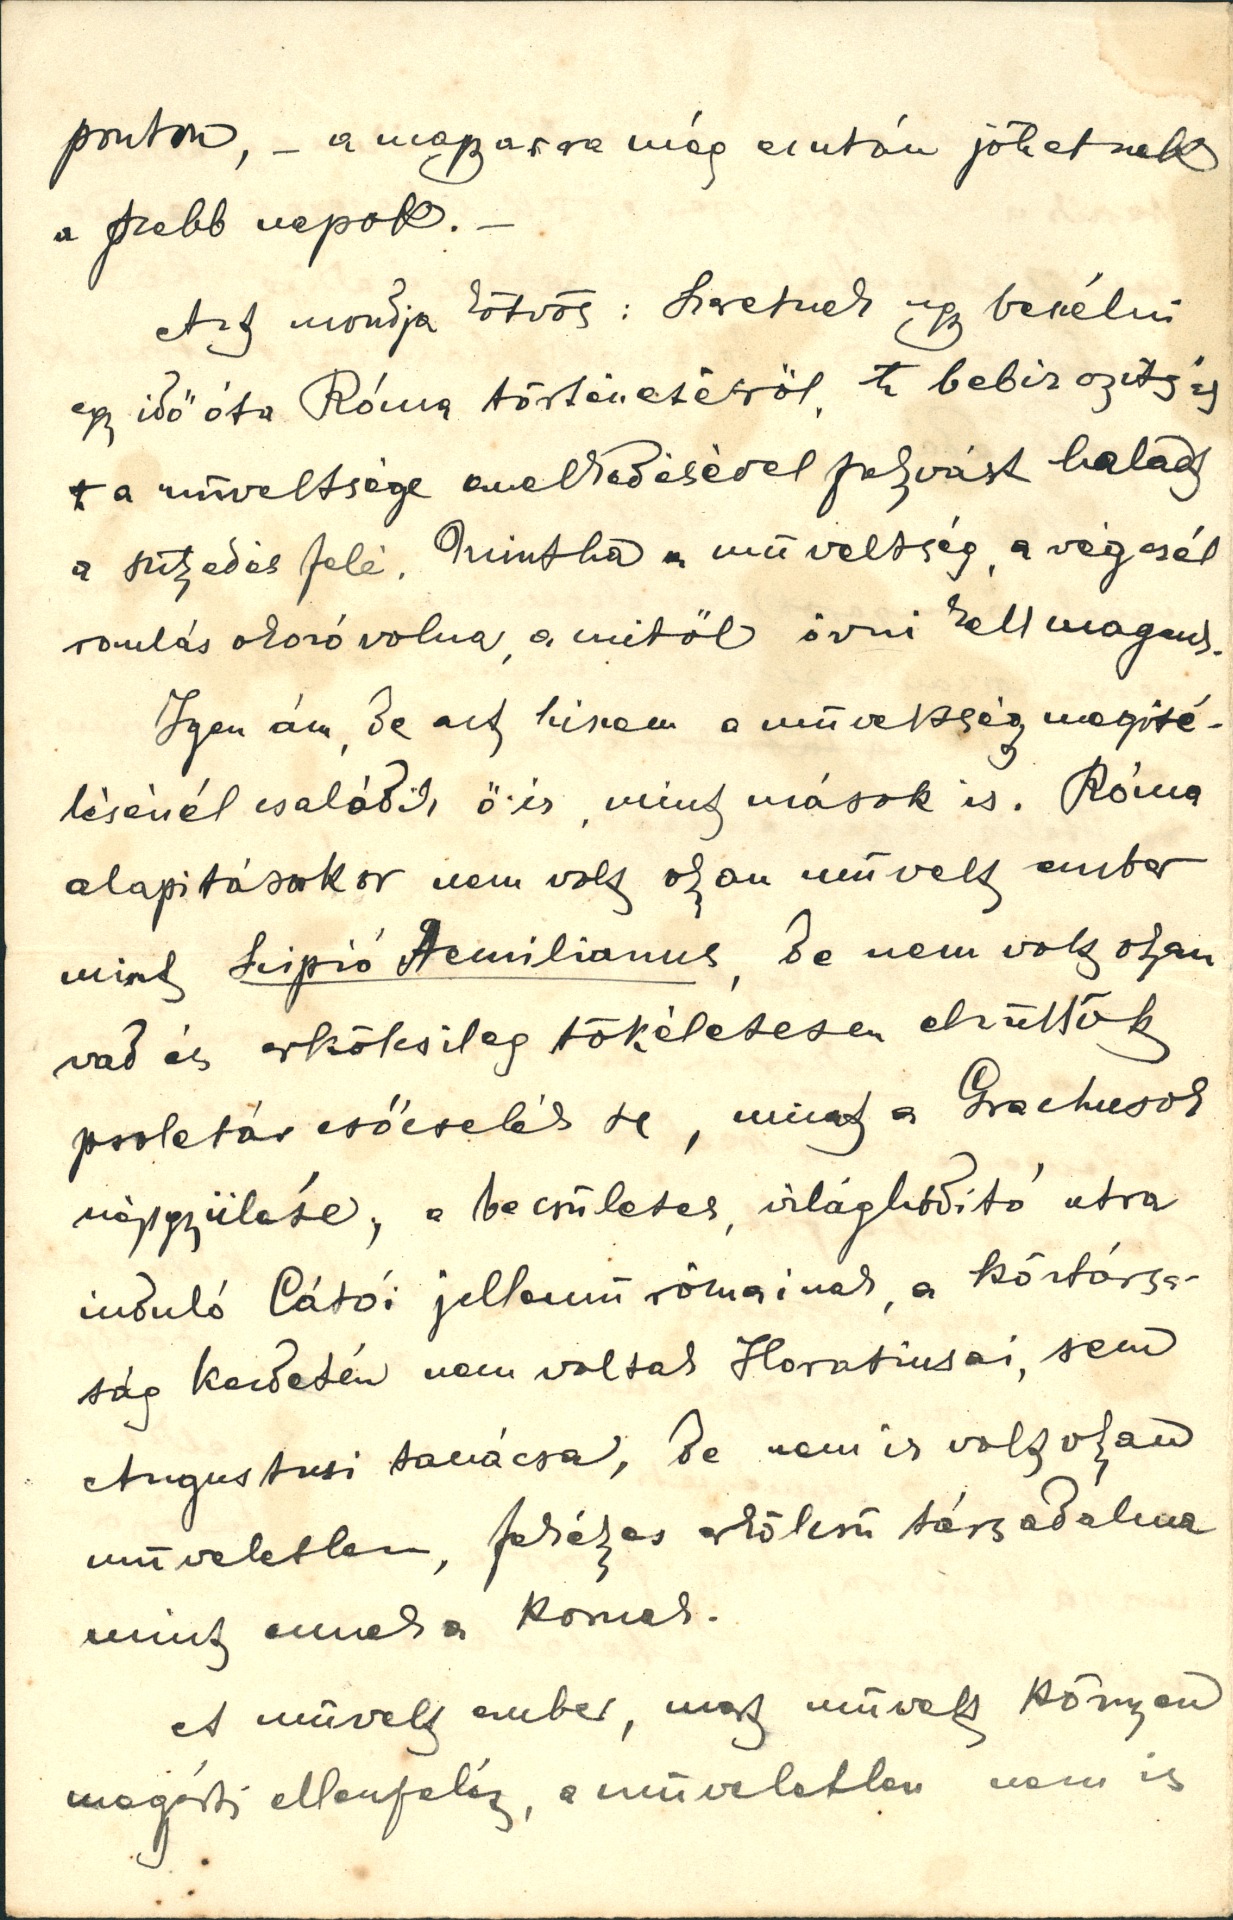 ponton, – a magyarra még ezután jöhetnek
a szebb napok. –
Azt mondja Eötvös: Szeretnek úgy beszélni
egy idő óta Róma történetéről, h bebizonyítsák
a műveltsége emelkedésével folyvást haladt
a sülyedés felé. Mintha a műveltség, a végcél
romlás okozó volna, a mitől óvni kell magunk.
Igen ám, de azt hiszem a műveltség megité-
lésénél csalódik ő is, mint mások is. Róma
alapitásakor nem volt olyan művelt ember
mint Scipió Aemilianus, de nem volt olyan
vad és erkölcsileg tökéletesen elzüllött
proletár csőcselék se, mint a Grachusok
népgyülése, a becsületes, világhóditó utra
induló Cátói jellemü rómainak, a köztársa-
ság kezdetén nem voltak Horatiusai, sem
Augustusi tanácsa, de nem is volt olyan
műveletlen, fekélyes erkölcsü társadalma
mint ennek a kornak.
A művelt ember, mert művelt könnyen
megérti ellenfelét, a műveletlen nem is